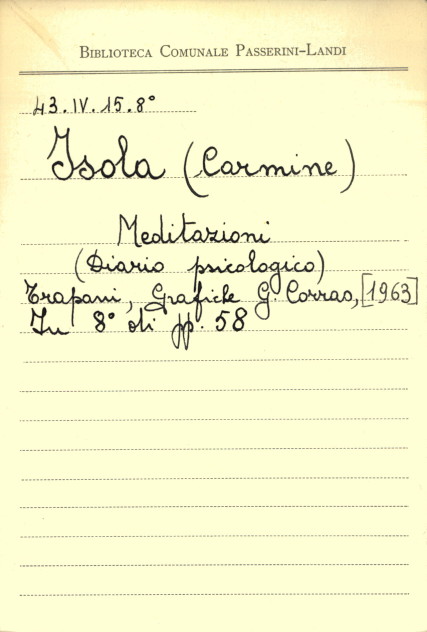 BIBLIOTECA COMUNALE PASSERINI-LANDI
43.IV.15.8°
Isola (Carmine)
Meditazioni
(Diario psicologico)
Trapani, Grafiche G. Corrao, [1963]
In 8° di pp. 58